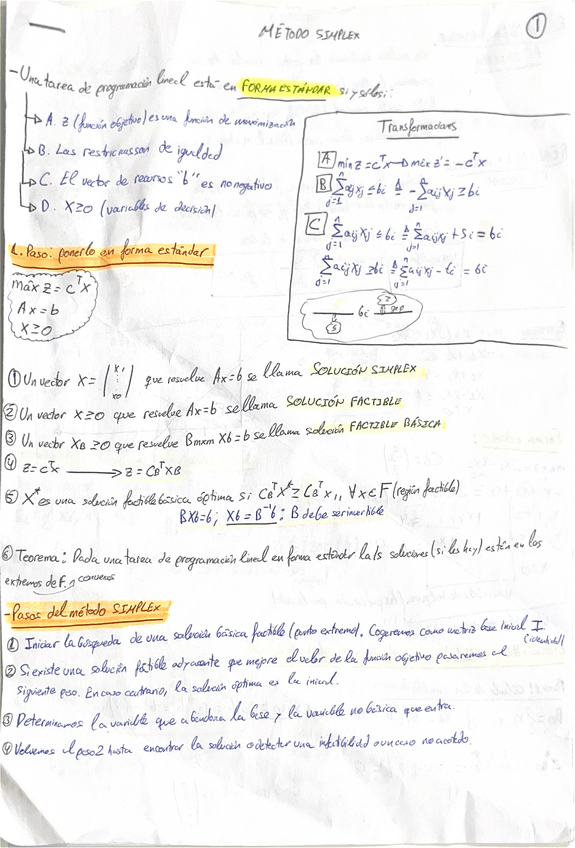 MÉTODO SIMPLEX
1
- Una tarea de programación lineal está en FORMA ESTÁNDAR si y sólo si:
A. z (función objetivo) es una función de maximización
B. Las restricciones son de igualdad
C. El vector de recursos "b" es no negativo
D. X≥0 (variables de decisión)
Transformaciones
A min z = cᵀx → máx z' = -cᵀx
B Σ aij xj ≤ bi ≙ - Σ aij xj ≥ bi
C Σ aij xj ≤ bi ≙ Σ aij xj + si = bi
Σ aij xj ≥ bi ≙ Σ aij xj - ti = bi
bi
1. Paso: ponerlo en forma estándar
máx z = cᵀx
Ax = b
X ≥ 0
① Un vector X = que resuelve Ax=b se llama SOLUCIÓN SIMPLEX
② Un vector X≥0 que resuelve Ax=b se llama SOLUCIÓN FACTIBLE
③ Un vector XB ≥0 que resuelve Bmxm Xb=b se llama solución FACTIBLE BÁSICA
④ z=cᵀx → z = CBᵀXB
⑤ X* es una solución factible básica óptima si CBᵀX* ≥ CBᵀx, ∀x∈F (región factible)
BXb=b; Xb = B⁻¹b : B debe ser invertible
⑥ Teorema: Dada una tarea de programación lineal en forma estándar la/s soluciones (si las hay) están en los
extremos de F, convexos
- Pasos del método SIMPLEX
① Iniciar la búsqueda de una solución básica factible (punto extremo). Cogeremos como matriz base inicial I (identidad)
② Si existe una solución factible adyacente que mejore el valor de la función objetivo pasaremos al
siguiente paso. En caso contrario, la solución óptima es la inicial.
③ Determinamos la variable que abandona la base y la variable no básica que entra.
④ Volvemos al paso 2 hasta encontrar la solución o detectar una infactibilidad o un caso no acotado.